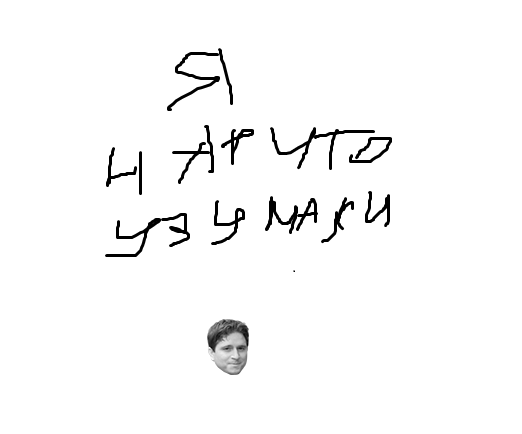 Я
НАРУТО
УЗУМАКИ